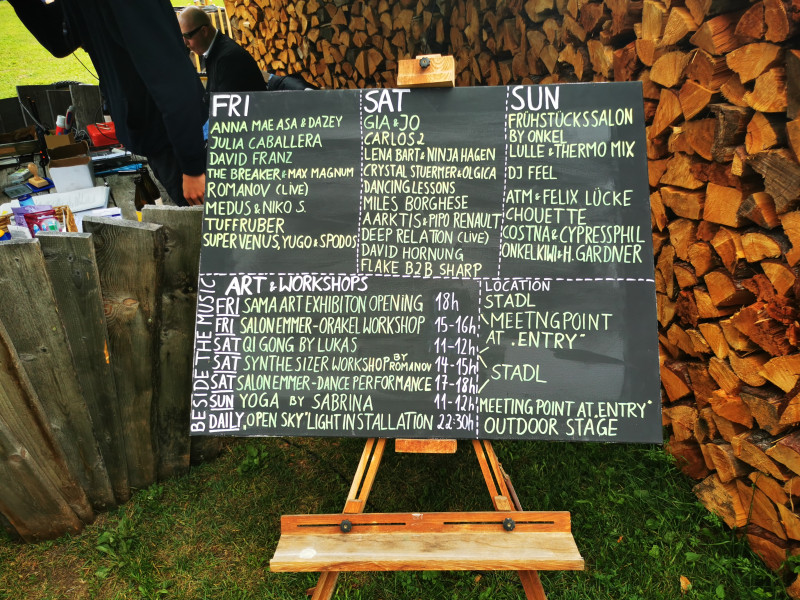 FRI
ANNA MAE ASA & DAZEY
JULIA CABALLERA
DAVID FRANZ
THE BREAKER & MAX MAGNUM
ROMANOV (LIVE)
MEDUS & NIKO S.
TUFFRUBER
SUPER VENUS, YUGO & SPODOS
SAT
GIA & JO
CARLOS 2
LENA BART & NINJA HAGEN
CRYSTAL STUERMER & OLGICA
DANCING LESSONS
MILES BORGHESE
AARKTIS & PIPO RENAULT
DEEP RELATION (LIVE)
DAVID HORNUNG
FLAKE B2B SHARP
SUN
FRÜHSTÜCKSSALON
BY ONKEL
LULLE & THERMO MIX
DJ FEEL
ATM & FELIX LÜCKE
CHOUETTE
COSTNA & CYPRESSPHIL
ONKEL KIWI & H. GARDNER
BESIDE THE MUSIC
ART & WORKSHOPS
FRI SAMA ART EXHIBITON OPENING 18h
FRI SALON EMMER-ORAKEL WORKSHOP 15-16h
SAT QI GONG BY LUKAS 11-12h
SAT SYNTHESIZER WORKSHOP BY ROMANOV 14-15h
SAT SALON EMMER-DANCE PERFORMANCE 17-18h
SUN YOGA BY SABRINA 11-12h
DAILY „OPEN SKY" LIGHT INSTALLATION 22:30h
LOCATION
STADL
MEETNGPOINT
AT „ENTRY"
STADL
MEETING POINT AT „ENTRY"
OUTDOOR STAGE